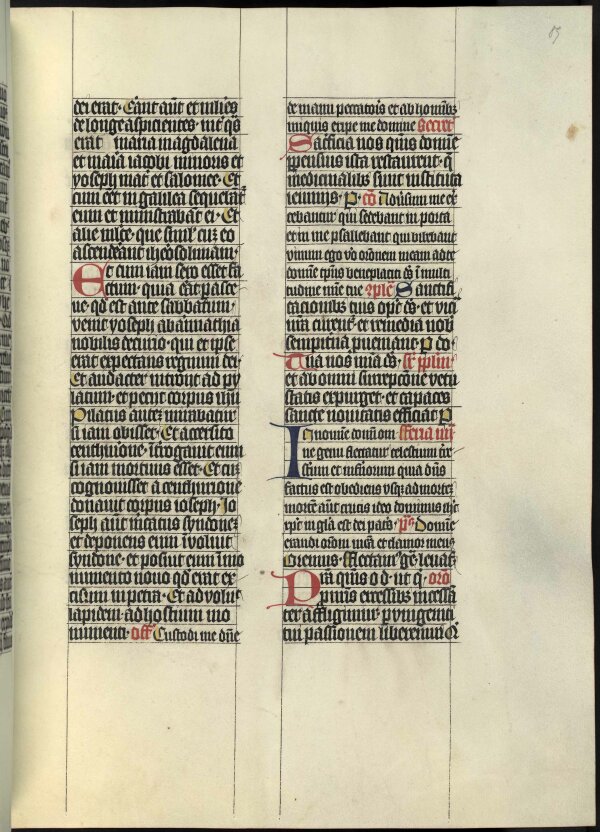 85
dei erat. Erant aut et mlieres
de longe aspicientes. int qs
erat maria magdalena
et maria iacobi minoris et
yoseph mat et salomee. Et
cum eet in galilea sequebat
eum et ministrabat ei. Et
alie multe. que simul cuz eo
ascenderant iherosolimam.
Et cum iam sero esset fa
ctum. quia erat pasce
ue qd est ante sabbatum.
venit yoseph ab arimathia
nobilis decurio. qui et ipse
erat expectans regnum dei
Et audacter introiit ad py
latum. et petiit corpus ihu
Pilatus autez mirabatur
si iam obisset. Et accersito
centurione. interrogauit eum
si iam mortuus esset. Et cuz
cognouisset a centurione
donauit corpus ioseph. Io
seph aut mcatus syndonez
et deponens eum inuoluit
syndone. et posuit eum in mo
numento nouo qd erat ex
cisum in petra. Et aduolu
lapidem. ad hostium mo
numenti. off Custodi me dne
de manu peccatoris et ab hominibz
iniquis eripe me domine Secret
Sacrificia nos qs domine
ppensius ista restaurent. q
medicinalibs sunt instituta
ieiuniis. P. co Aduersum me ex
ercebantur qui sedebant in porta
et in me psallebant qui bibebant
vinum ego vo oronem meam ad te
domine tpus beneplaciti ds in multi
tudine mie tue 9plc Sanctifi
cacionibs tuis opc ds. et vici
nra curent. et remedia nob
sempitna pueniant. P do
Tua nos mia ds. sr pplm
et ab omni surrepcone vetu
statis expurget. et capaces
sancte nouitatis efficiat P
In nomine domini om feria iiii
ne genu flectatur celestium tre
strium et infernorum quia dns
factus est obediens vsqz ad mortez
mortem aut crucis ideo dominus ihc
xpc in gla est dei patris ps Domine
exaudi oronem meam et clamor meus
Oremus. Flectam ge. leuate
Pra qs o d. ut q. oro
priis excessibz incessa
ter affligimur. p vnigeniti
tui passionem liberemur. Q